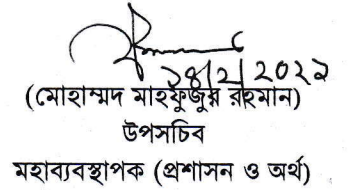 ১৪/২/২০২২
(মোহাম্মদ মাহফুজুর রহমান)
উপসচিব
মহাব্যবস্থাপক (প্রশাসন ও অর্থ)